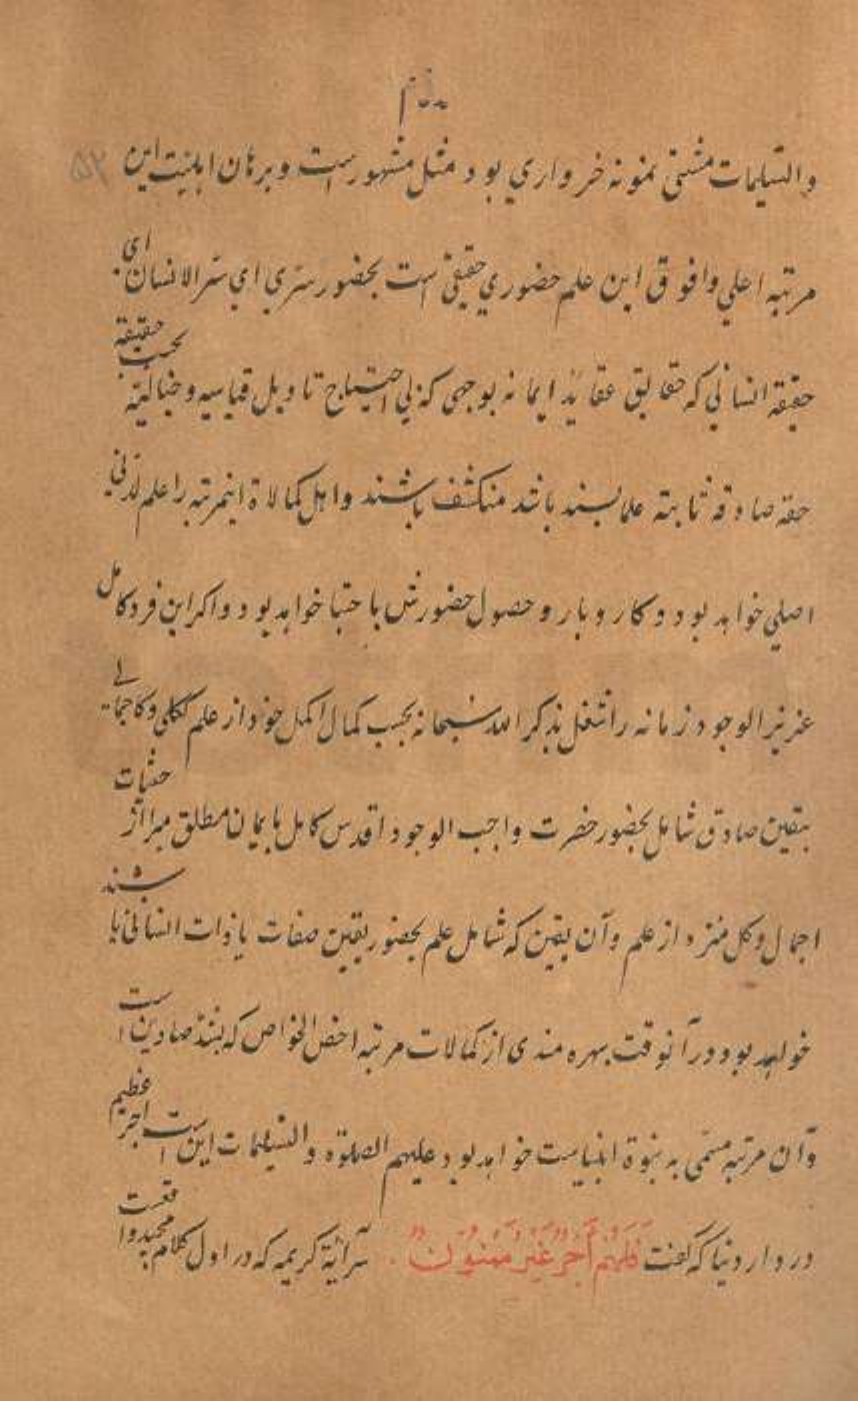 ۵۲
والتسلیمات مشتی نمونه خرواری بود مثل مشهور است و برهان ابلنیت این
مرتبه اعلی وافوق این علم حضوری حقیقی است بحضور سری ای سر الانسان ای
حقیقة انسانی که حقایق عقاید ایمانه بوجهی که بی احتیاج تاویل قیاسیه و خیالیه بحسب حقیقة
حقه صادقه ثابته علما بسند باشد منکشف باشند واهل کمالاة اینمرتبه را علم لدنی
اصلی خواهد بود و کار و بار و حصول حضورش با خواهد بود واکر این فرد کامل
عزیز الوجود زمانه را شغل بذکر الله سبحانه بحسب کمال اکمل خود از علم کلی و
بیقین صادق شامل بحضور حضرت واجب الوجود اقدس کامل با ایمان مطلق مبرا از حثیات
اجمال وکل منزه از علم وآن یقین که شامل علم بحضور یقین صفات یا ذات انسانی باشند
خواهد بود ودر آنوقت بهره مندی از کمالات مرتبه اخص الخواص که صادین است
وآن مرتبه مسمی به نبوة انبیاست خواهد بود علیهم الصلوة والتسلیمات این است اجر عظیم
در دار دنیا که گفت فَلَهُمْ أَجْرٌ غَيْرُ مَمْنُونٍ سر آیة کریمه که در اول کلام مجید واقعست